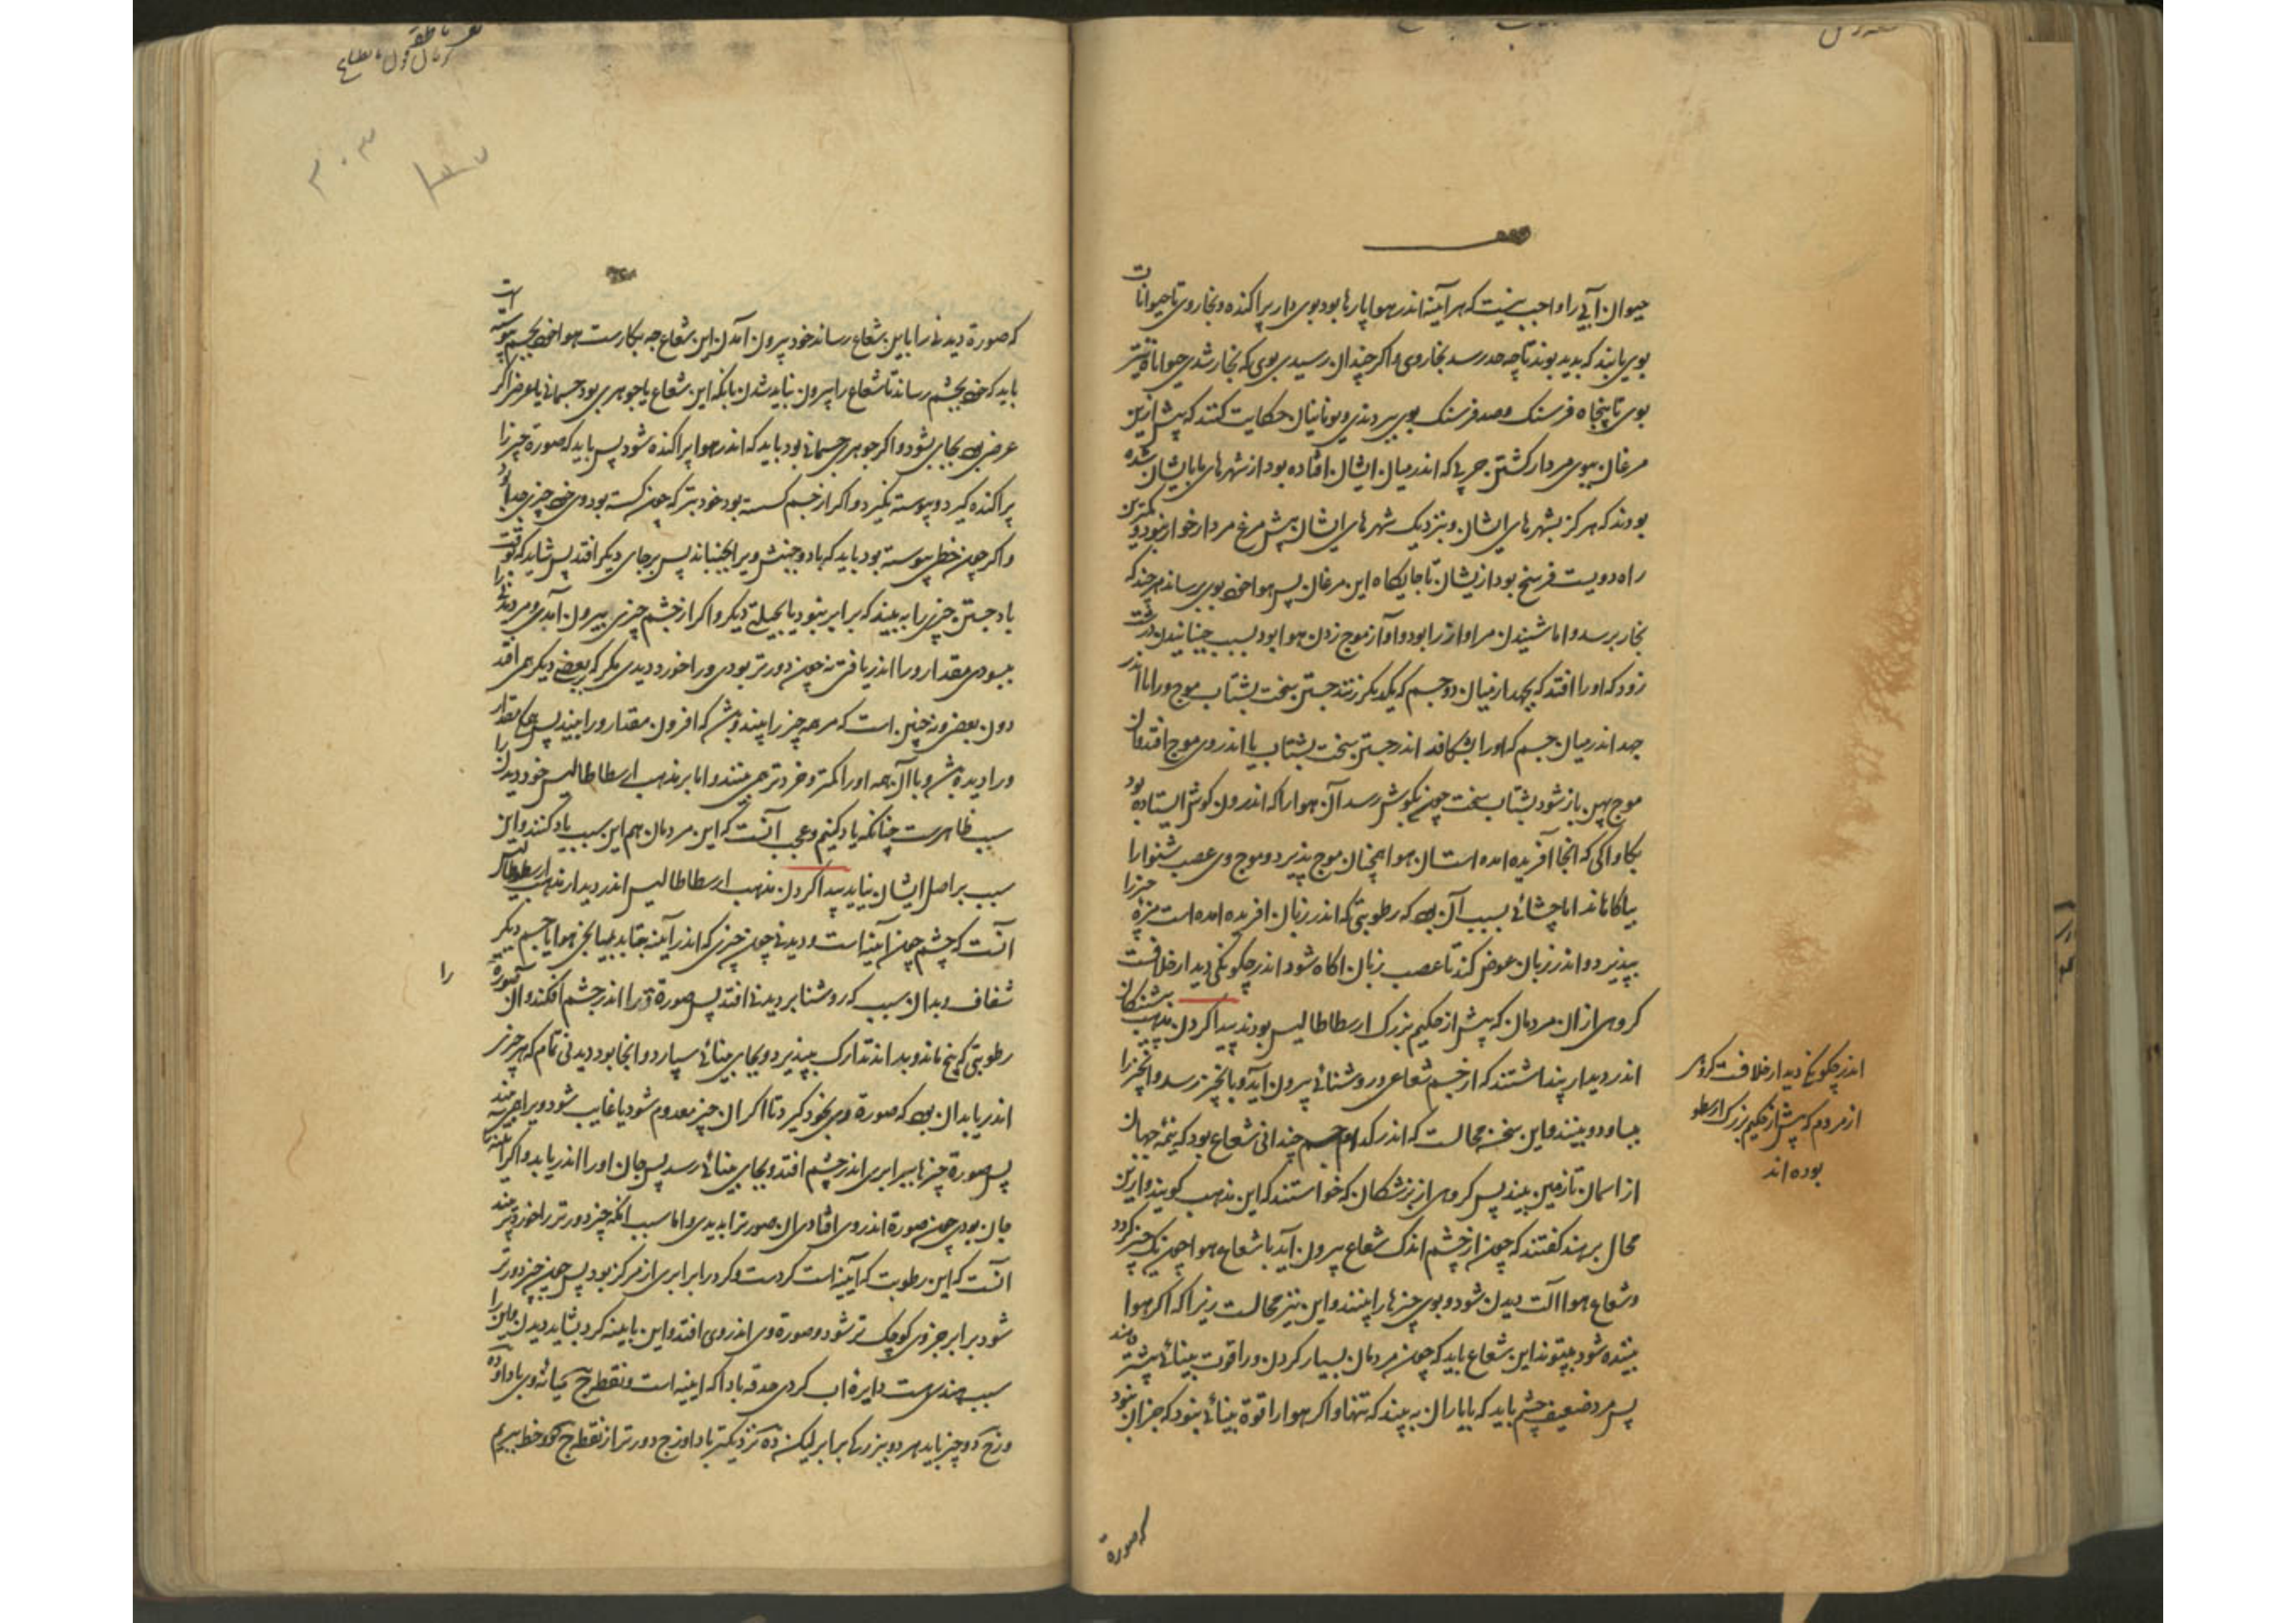 حیوان آبی را واجب نیست که هر آینه اندر هوا پارها بود بوی دار پراکنده و بخار وی تا حیوانات
بوی یابند که بدید بوند تا چه حد رسد بخار وی و اگر چندان رسیدی بوی که بخار شدی حیوانات
بوی تا پنجاه فرسنک و صد فرسنک بوی بردندی و یونانیان حکایت کنند که پیش ازین
مرغان ببوی مردار کشتن حربی که اندر میان ایشان افتاده بود از شهرهای ایشان شده
بودند که هرکز بشهرهای ایشان و بنزدیک شهرهای ایشان مرغ مردار خوار نبود و کمترین
راه دویست فرسخ بود از یشان تا جایکاه این مرغان پس هوا خود بوی برساند هرچند که
بخار نرسد و اما شنیدن مر آواز را بود و آواز موج زدن هوا بود بسبب جنبانیدن
زود که او را افتد که بجهد از میان دو جسم که یکدیکر زنند جستن سخت بشتاب موج ور اما اندر
جهد اندر میان جسم که او را بشکافد اندر جستن سخت بشتاب یا اندر وی موج افتد و آن
موج پهن باز شود بشتاب سخت چون بکوش رسد آن هوا را که اندرون کوش ایستاده بود
بکاواکی که آنجا آفریده آمده است آن هوا همچنان موج پذیرد و موج وی عصب شنوا را
بیاکاهاند اما چشائی بسبب آن بود که رطوبتی که اندر زبان آفریده آمده است مزه چیز را
بپذیرد و اندر زبان غوض کند تا عصب زبان اکاه شود اندر چکونکی دیدار خلافست
کروهی از آن مردمان که پیش از حکیم بزرک ارسطاطالیس بودند پیدا کردن مذهب پیشینکان
اندر دیدار پنداشتند که از چشم شعاعی و روشنائی بیرون آید و بانچیز رسد و آنچیز را
بپساود و ببیند و این سخن محالست که اندر کدام چشم چندانی شعاع بود که نیمه جهان
از آسمان تا زمین ببیند پس کروهی از بزشکان که خواستند که این مذهب کویند و ازین
محال برهند کفتند که چون از چشم اندک شعاع بیرون آید با شعاع هوا چون یک چیز کردد
و شعاع هوا آلت دیدن شود و بوی چیزها را ببینند و این نیز محالست زیرا که اکر هوا
بیننده شود بپیوند این شعاع باید که چون مردمان بسیار کردند ورا قوت بینائی بیشتر دهند
پس مرد ضعیف چشم باید که با یاران به بیند که تنها و اکر هوا را قوة بینائی نبود که جز آن نبود
اندر چکونکی دیدار خلافست کروهی
از مردم که پیش از حکیم بزرک ارسطو
بوده اند
که صورة
که صورة دیدنی را باین شعاع رساند خود بیرون آمدن این شعاع چه بکارست هوا خود بچشم پیوسته است
باید که خود بچشم رساند تا شعاع را بیرون نباید شدن بانکه این شعاع یا جوهری بود جسمانی یا عرض اکر
عرض بود بجای نشود و اکر جوهر جسمانی بود باید که اندر هوا پراکنده شود پس باید که صورة چیز را
پراکنده کیرد و پیوسته نکیرد و اکر از چشم کسسته بود خود بتر که چون کسسته بود وی خود چیزی جدا بود
و اکر چون خطی پیوسته بود باید که باد و جنبش ویرا بجنباند پس بر جای دیکر افتد پس شاید که وقت
باد جستن چیزی را به بیند که برابر نبود یا بحیلتی دیکر و اکر از چشم چیزی بیرون آمدی و مر دیدنی را
ببسودی مقدار ورا اندر یافتی نه چون دورتر بودی ورا خورد دیدی مکر که بر بعضی دیکر همی افتد
دون بعضی و نه چنین است که مر همه چیز را بیند و بیش که افزون مقدار ورا بیند پس هم مقدار
ورا دیده بیش و با آن همه او را کمتر و خردتر همی بینند و اما بر مذهب ارسطاطالیس خود دیدن را
سبب ظاهرست چنانکه یاد کنیم و عجب آنست که این مردمان هم این سبب یاد کنند و این
سبب بر اصل ایشان نیاید پیدا کردن مذهب ارسطاطالیس اندر دیدار مذهب ارسطاطالیس
آنست که چشم چون آینه است و دیدنی چون چیزی که اندر آینه بتابد بمیانجی هوا یا جسم دیکر
را
شفاف و بدان سبب که روشنا بر دیدنی افتد پس صورة ورا اندر چشم افکند و آن صورة
رطوبتی که بیخ ماند و بدانه تذرک بپذیرد و بجای بینائی سپارد و آنجا بود دیدنی تمام که هر چیز
اندر یابد آن بود که صورة وی بخود کیرد تا اکر آن چیز معدوم شود یا غایب شود ویرا همی بیند
پس صورة چیزها ببرابری اندر چشم افتد و بجای بینائی رسد پس جان او را اندر یابد و اکر آینه را
جان بودی چون صورة اندر وی افتادی آن صورة را بدیدی و اما سبب آنکه چیز دورتر را خوردتر بیند
آنست که این رطوبت که آینه است کردست و کرد را برابری از مرکز بود پس چون چیز دورتر
شود برابر جزوی کوچک تر شود و صورة وی اندر وی افتد و این بآینه کرد بشاید دیدن و این را
سبب هندسیست دایرهٔ اب کردی حدقه بادا که آینه است و نقطه ح میانه وی بادا و
و زح دو چیز باید هر دو ببزرکی برابر لیکن ده نزدیکتر باد و زح دورتر از نقطه ح دو خط بیریم